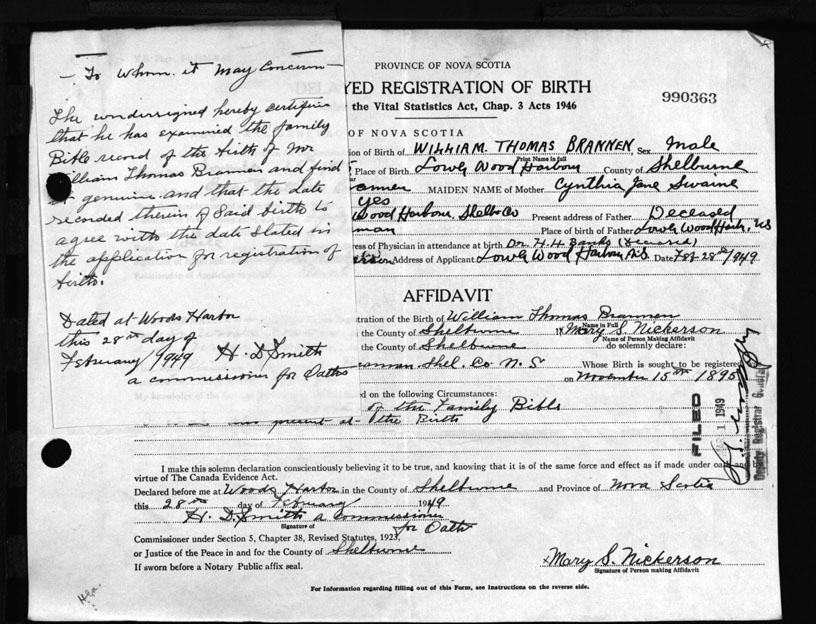 — To Whom it May Concern —
The undersigned hereby certifies
that he has examined the family
Bible record of the birth of Mr
William Thomas Brannen and find
genuine and that the date
recorded therein of said birth to
agree with the date stated in
the application for registration of
birth.
Dated at Woods Harbor
this 28th day of
February 1949 H. D. Smith
a commissioner for Oaths
PROVINCE OF NOVA SCOTIA
YED REGISTRATION OF BIRTH
the Vital Statistics Act, Chap. 3 Acts 1946
990363
OF NOVA SCOTIA
ion of Birth of WILLIAM THOMAS BRANNEN Sex Male
Print Name in full
Place of Birth Lower Wood Harbour County of Shelburne
MAIDEN NAME of Mother Cynthia Jane Swaine
Yes
Wood Harbour, Shelb Co Present address of Father Deceased
man Place of Birth of Father Lower Wood Harb, NS
ress of Physician in attendance at birth Dr. H. H. Banks (Deceased)
Address of Applicant Lower Wood Harbour N.S. Date Feb 28th 1949
AFFIDAVIT
tration of the Birth of William Thomas Brannen
Name in Full
the County of Shelburne Mary S. Nickerson
Name of Person Making Affidavit
the County of Shelburne do solemnly declare:
Shel. Co N. S Whose Birth is sought to be registered
on November 15th 1895
d on the following Circumstances:
of the Family Bible
was present at the Birth
FILED
1 1949
Deputy Registrar General
I make this solemn declaration conscientiously believing it to be true, and knowing that it is of the same force and effect as if made under oath and by
virtue of The Canada Evidence Act.
Declared before me at Woods Harbor in the County of Shelburne and Province of Nova Scotia
this 28th day of February 1949
H. D. Smith a Commissioner
for Oaths
Signature of
Commissioner under Section 5, Chapter 38, Revised Statutes, 1923,
or Justice of the Peace in and for the County of Shelburne
If sworn before a Notary Public affix seal.
x Mary S. Nickerson
Signature of Person making Affidavit
For Information regarding filling out of this Form, see Instructions on the reverse side.